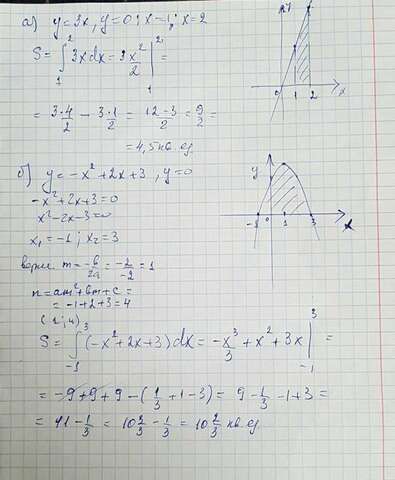 а) y=3x, y=0; x=1; x=2
S = ∫₁² 3x dx = 3x²/2 |₁² =
= 3·4/2 − 3·1/2 = 12−3/2 = 9/2 =
= 4,5 кв ед
y
0 1 2 x
б) y=−x²+2x+3, y=0
−x²+2x+3=0
x²−2x−3=0
x₁=−1; x₂=3
m = −b/2a = −2/−2 = 1
n = am²+bm+c =
= −1+2+3=4
(1;4)
y
−1 0 1 3 x
S = ∫₋₁³ (−x²+2x+3) dx = −x³/3 + x² + 3x |₋₁³ =
= −9+9+9 − (1/3 + 1 − 3) = 9 − 1/3 − 1 + 3 =
= 11 − 1/3 = 10 3/3 − 1/3 = 10 2/3 кв ед